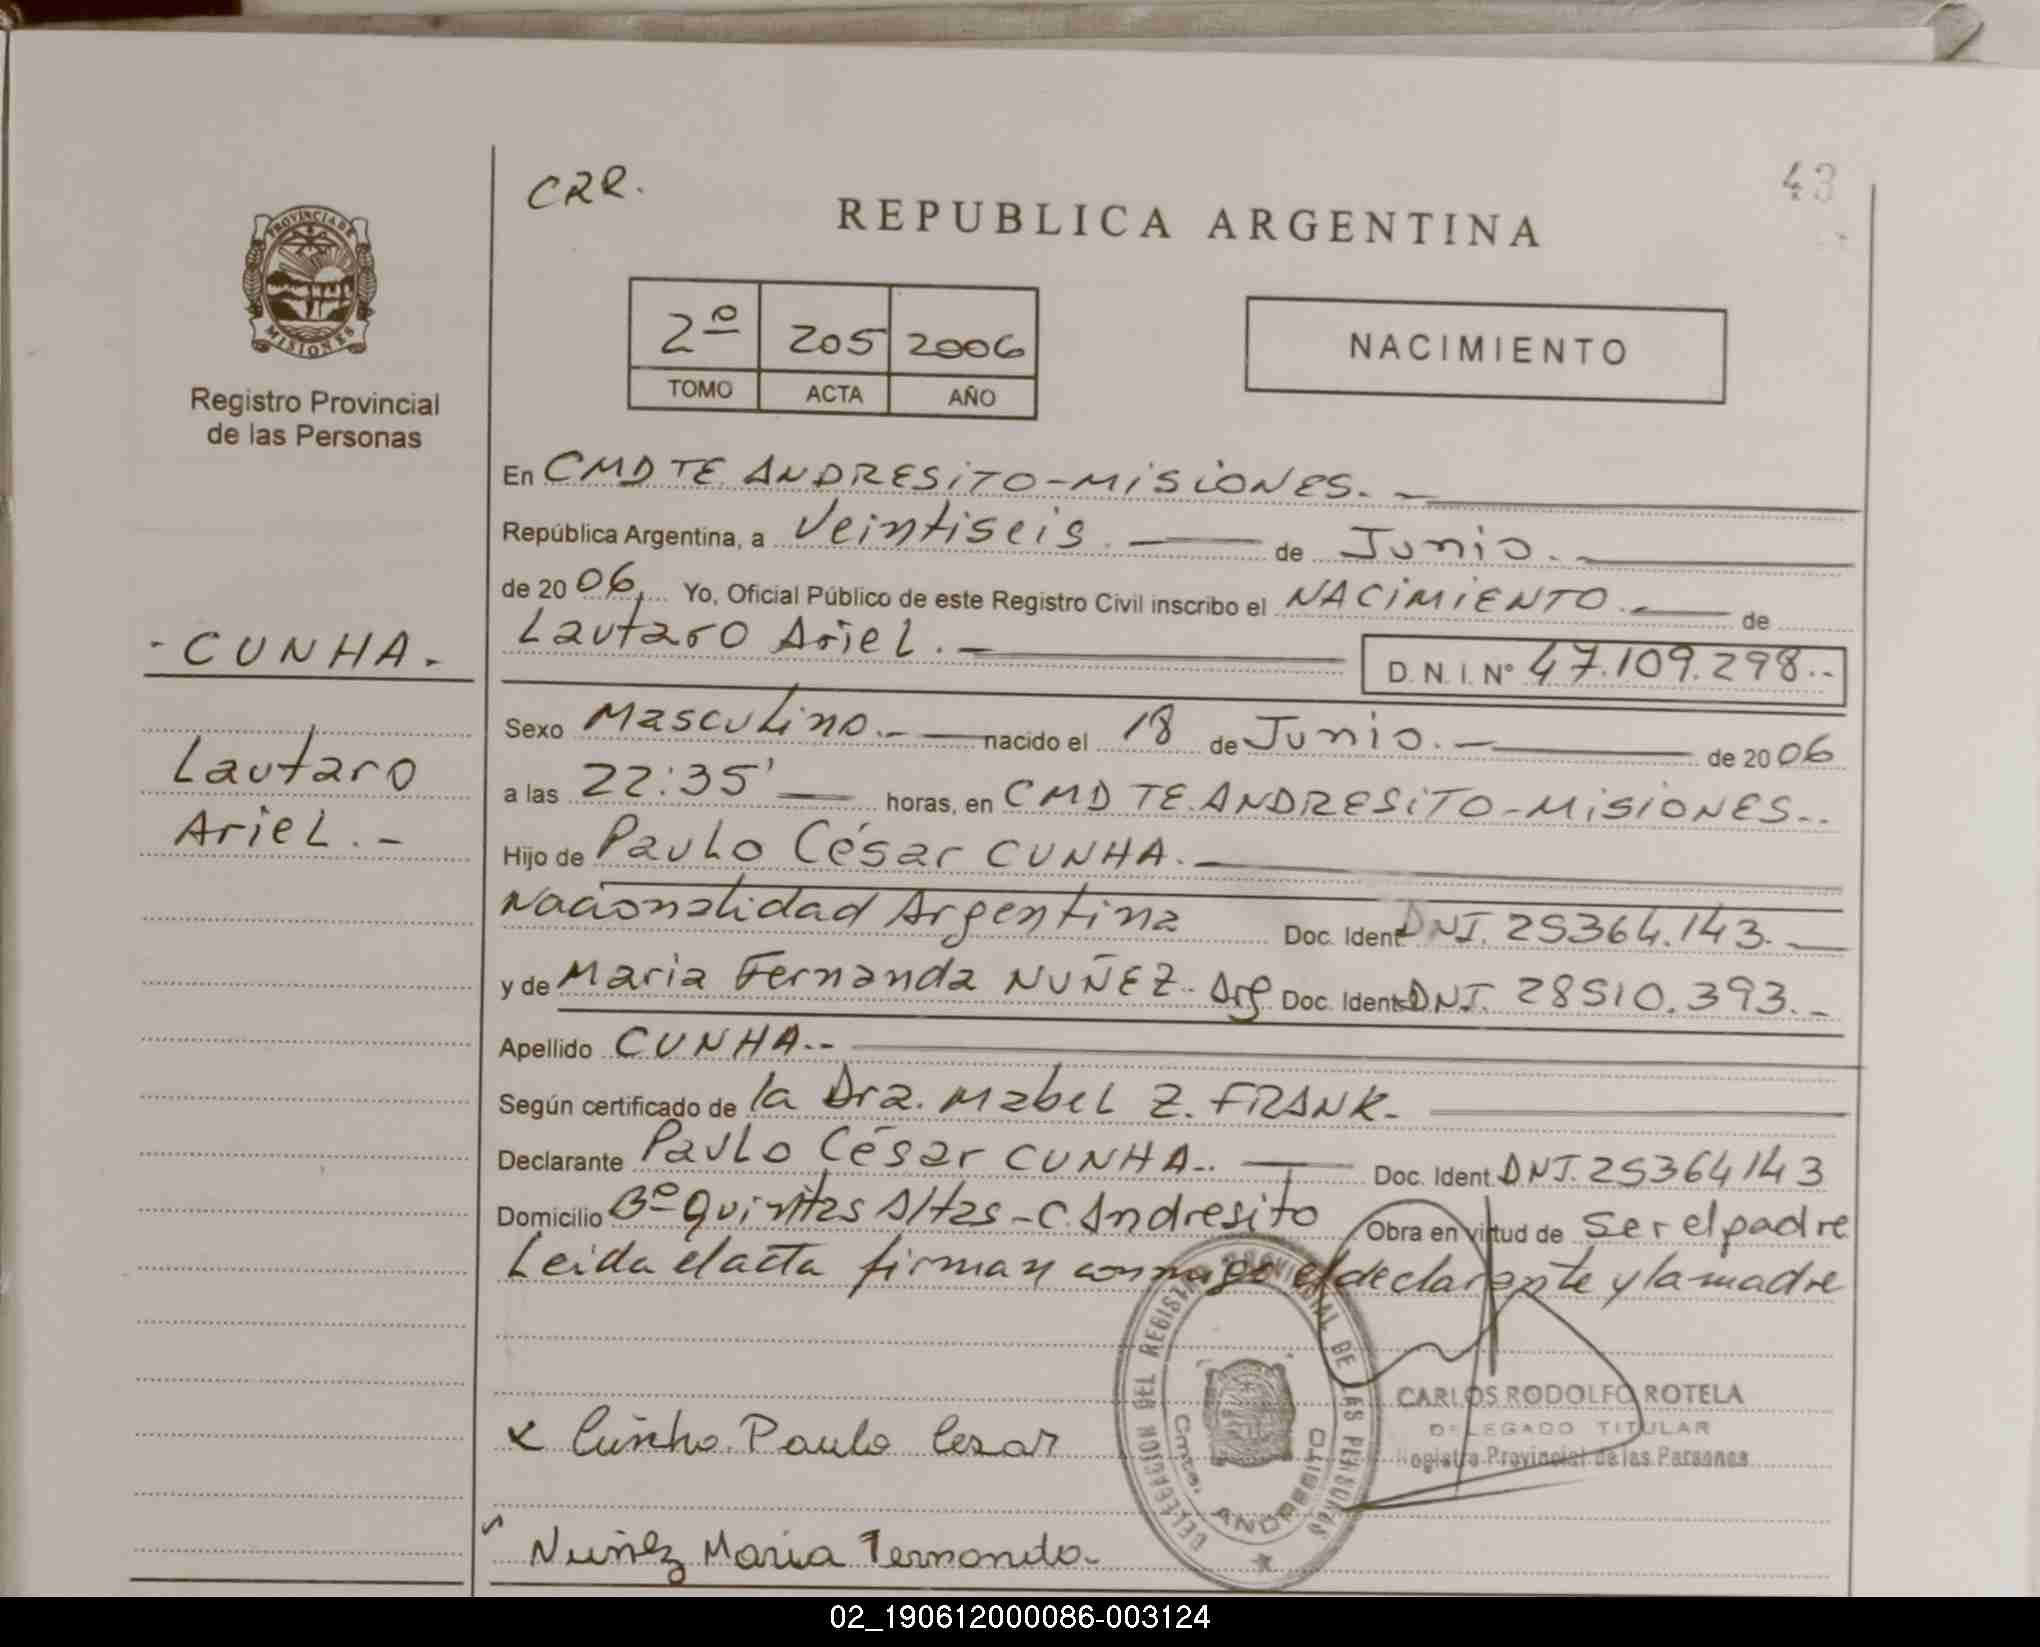 CRR.
43
REPUBLICA ARGENTINA
PROVINCIA DE
MISIONES
Registro Provincial
de las Personas
2º 205 2006
TOMO ACTA AÑO
NACIMIENTO
En CMDTE. ANDRESITO-MISIONES.-
República Argentina, a Veintiseis.- de Junio.-
de 2006. Yo, Oficial Público de este Registro Civil inscribo el NACIMIENTO.- de
Lautaro Ariel.-
D. N. I. Nº 47.109.298.-
- CUNHA.
Lautaro
Ariel.-
Sexo Masculino.- nacido el 18 de Junio.- de 2006
a las 22:35' horas, en CMDTE. ANDRESITO-MISIONES.-
Hijo de Paulo César CUNHA.
Nacionalidad Argentina Doc. Ident DNI. 25364.143.
y de Maria Fernanda NUÑEZ- Arg Doc. Ident DNI. 28510.393.-
Apellido CUNHA.-
Según certificado de la Dra. Mabel Z. FRANK-
Declarante Paulo César CUNHA.- Doc. Ident. DNI. 25364143
Domicilio Bº Quintas Altas - C. Andresito Obra en virtud de Ser el padre
Leida el acta firman conmigo el declarante y la madre
DELEGACION DEL REGISTRO PROVINCIAL DE LAS PERSONAS
Cmdte. ANDRESITO
CARLOS RODOLFO ROTELA
DELEGADO TITULAR
Registro Provincial de las Personas
x Cunha Paulo Cesar
Nuñez Maria Fernanda-
02_190612000086-003124